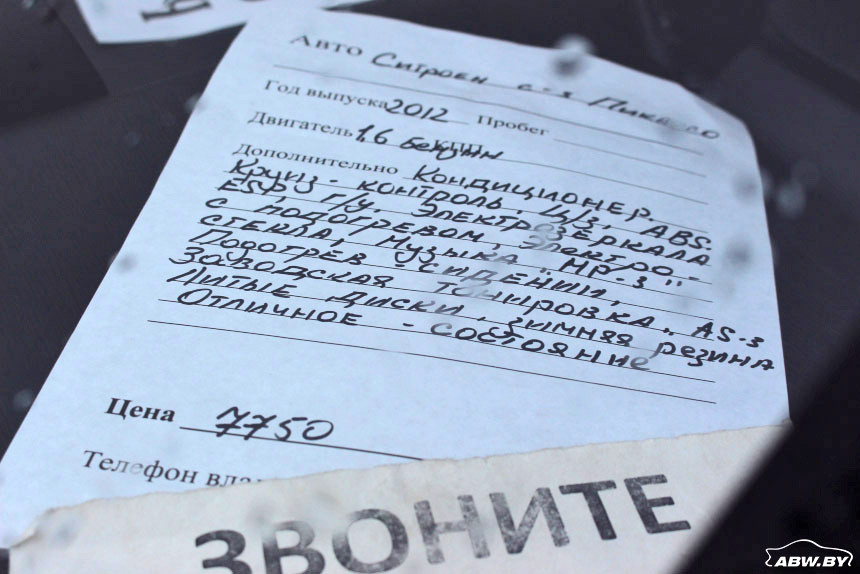 Авто Ситроен с-3 Пикассо
Год выпуска 2012 Пробег
Двигатель 1,6 Бензин КПП
Дополнительно Кондиционер
Круиз-контроль, Ц/З, ABS
ESP, Г/У, Электрозеркала
с подогревом, Электро-
стекла, Музыка "MP-3"
Подогрев-сидений,
Заводская тонировка, AS-3
Литые диски, зимняя резина
Отличное - состояние
Цена 7750
Телефон
ЗВОНИТЕ
ABW.BY